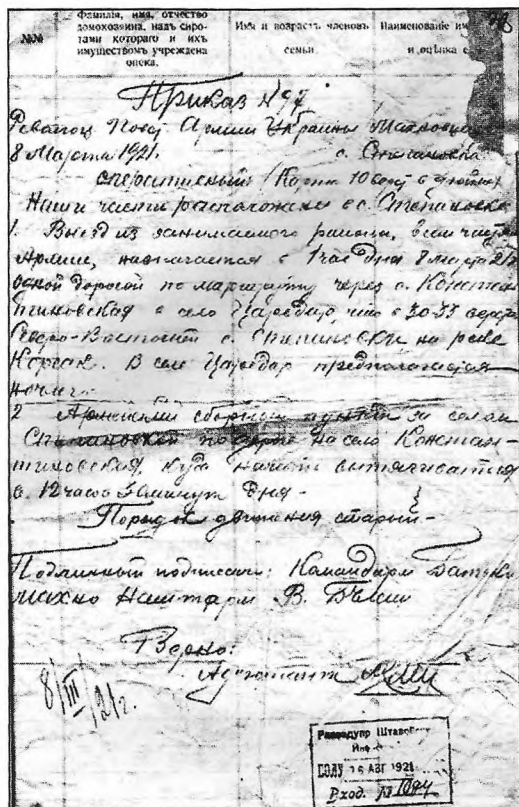 №№
Фамилія, имя, отчество домохозяина, надъ сиротами котораго и ихъ имуществомъ учреждена опека.
Имя и возрастъ членовъ семьи.
Наименованіе
и оцѣнка
Приказ № 97
Повст Армии Украины Махновцев
8 Марта 1921. с. Степановка
оперативный (Карта 10 верст в дюйме)
Наши части расположены в с. Степановке
1. Выезд из занимаемого района, всем частям
Армии, назначается в 1 час дня 8 марта 21 г
одной дорогой по маршруту через с. Констан
тиновская в село Царедар, что в 30-35 верст
Северо-Восточней с. Степановки на реке
Корсак. В селе Царедар предполагается
ночлег.
2 Армейский сборный пункт за селом
Степановкой по дороге на село Констан-
тиновская, куда начать вытягиватся
в 12 часов минут дня.
Порядок движения старый
Подлинный подписали: Командарм Батько
Махно Наштарм В. Белаш
Верно:
Адъютант
8/III/21г.
Разведупр
16 АВГ 1921
Вход. № 1094